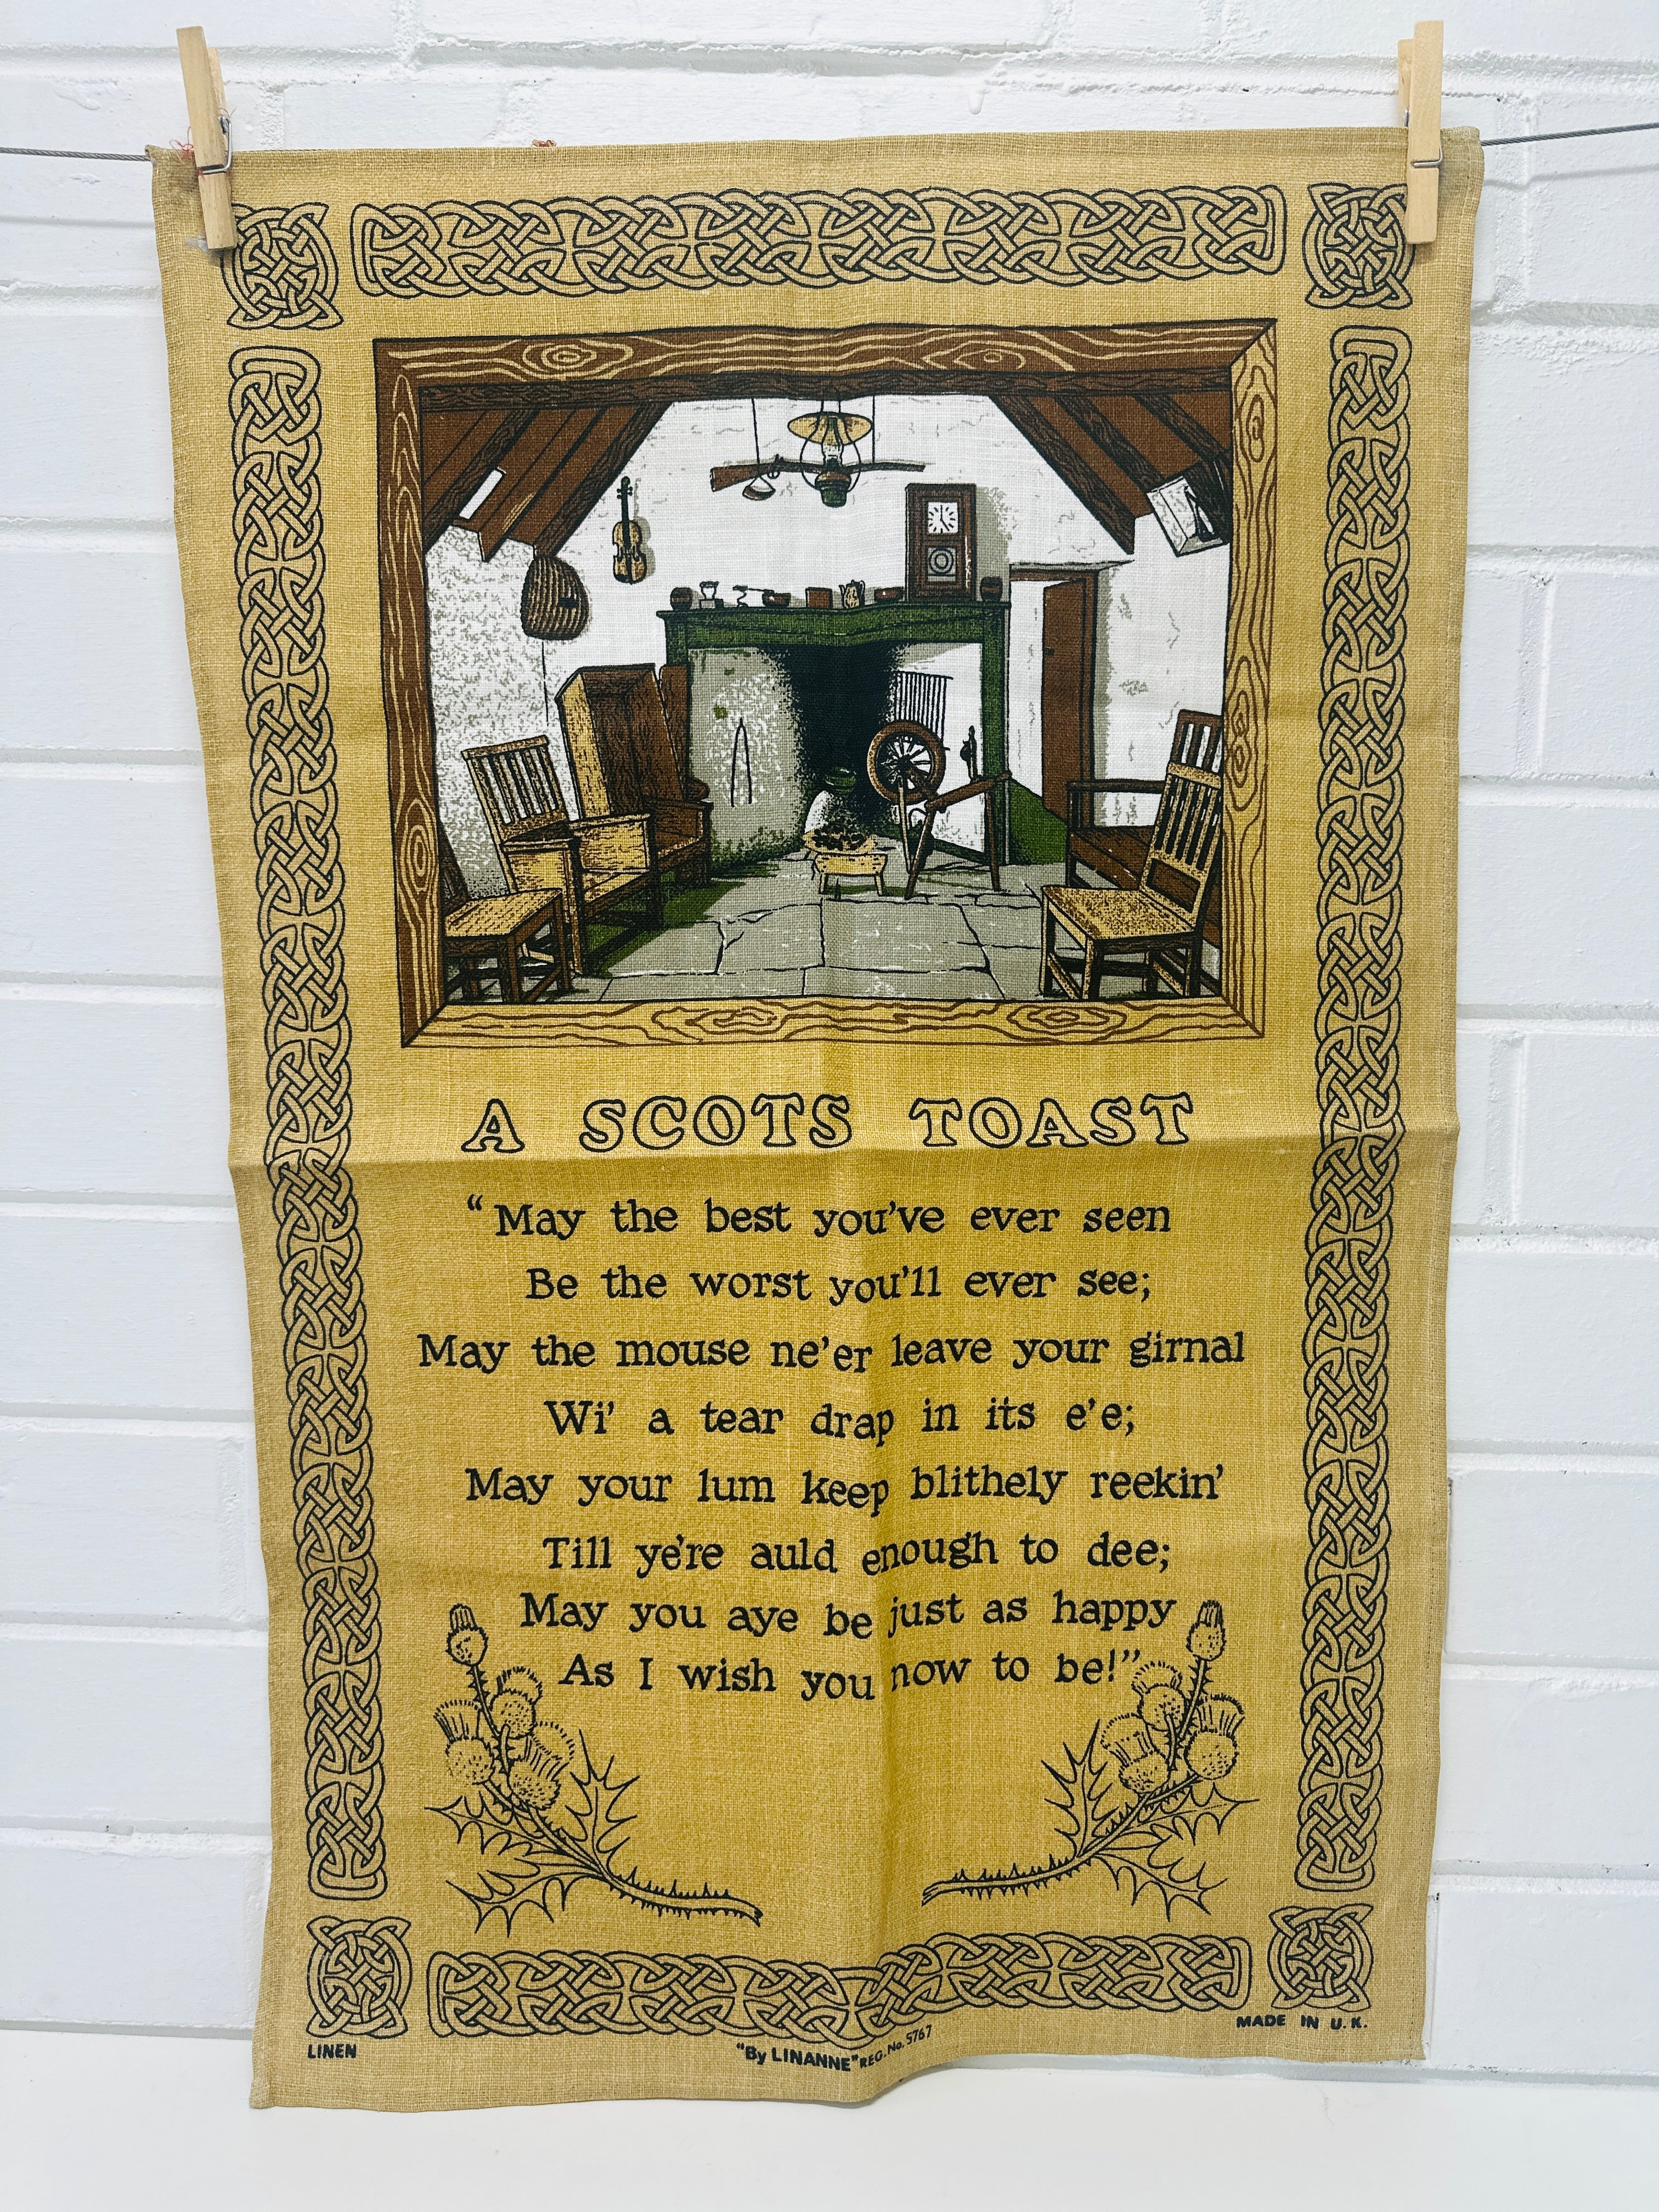 A SCOTS TOAST
“May the best you've ever seen
Be the worst you'll ever see;
May the mouse ne'er leave your girnal
Wi' a tear drap in its e'e;
May your lum keep blithely reekin'
Till ye're auld enough to dee;
May you aye be just as happy
As I wish you now to be!”
LINEN
"By LINANNE" REG. No. 5767
MADE IN U.K.